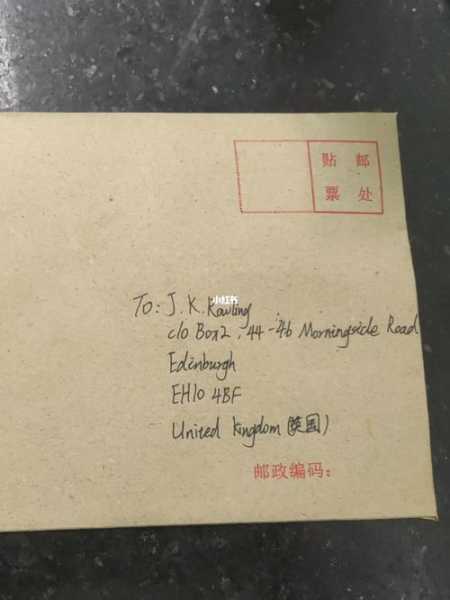 贴 邮
票 处
小红书
To: J. K. Rowling
c/o Box 2, 44-46 Morningside Road
Edinburgh
EH10 4BF
United Kingdom (英国)
邮政编码: